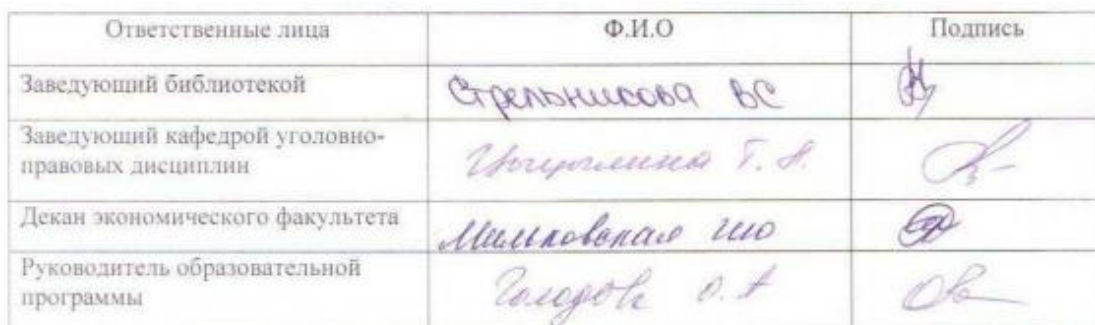 Ответственные лица Ф.И.О Подпись
Заведующий библиотекой Стрельникова ВС
Заведующий кафедрой уголовно-
правовых дисциплин Т. А.
Декан экономического факультета
Руководитель образовательной
программы О. А